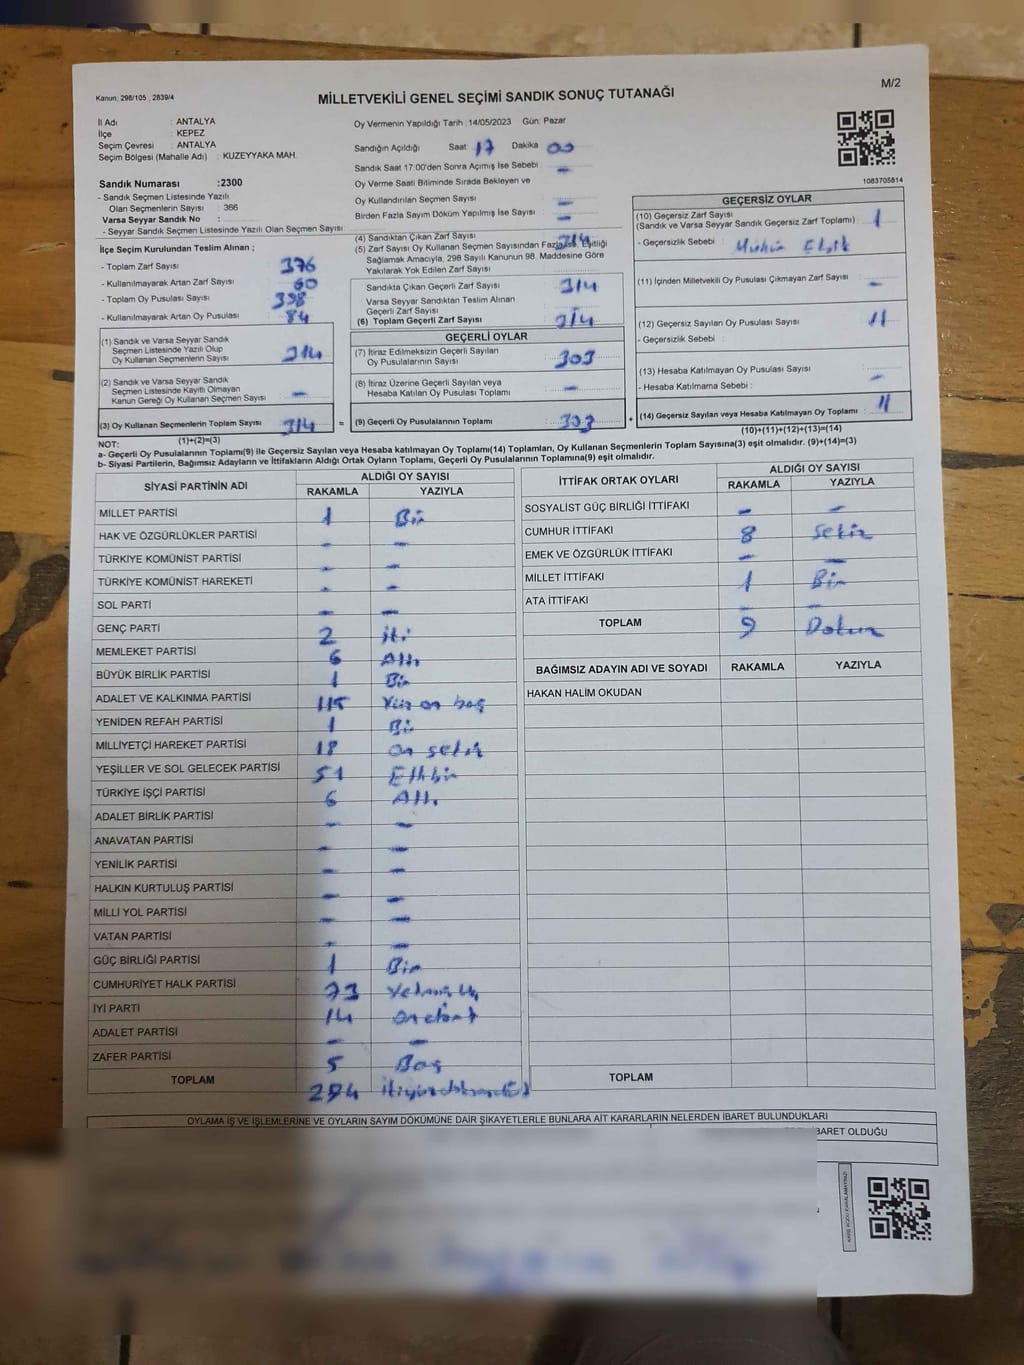 M/2
Kanun, 298/105 , 2839/4
MİLLETVEKİLİ GENEL SEÇİMİ SANDIK SONUÇ TUTANAĞI
İl Adı : ANTALYA
İlçe : KEPEZ
Seçim Çevresi : ANTALYA
Seçim Bölgesi (Mahalle Adı) : KUZEYYAKA MAH.
Sandık Numarası :2300
- Sandık Seçmen Listesinde Yazılı
Olan Seçmenlerin Sayısı : 366
Varsa Seyyar Sandık No :
- Seyyar Sandık Seçmen Listesinde Yazılı Olan Seçmen Sayısı:
Oy Vermenin Yapıldığı Tarih :14/05/2023 Gün: Pazar
Sandığın Açıldığı Saat: 17 Dakika 00
Sandık Saat 17:00'den Sonra Açımış İse Sebebi : -
Oy Verme Saati Bitiminde Sırada Bekleyen ve
Oy Kullandırılan Seçmen Sayısı : -
Birden Fazla Sayım Döküm Yapılmış İse Sayısı : -
1083705814
İlçe Seçim Kurulundan Teslim Alınan ;
- Toplam Zarf Sayısı : 376
- Kullanılmayarak Artan Zarf Sayısı : 60
- Toplam Oy Pusulası Sayısı : 398
- Kullanılmayarak Artan Oy Pusulası : 84
(1) Sandık ve Varsa Seyyar Sandık
Seçmen Listesinde Yazılı Olup
Oy Kullanan Seçmenlerin Sayısı : 314
(2) Sandık ve Varsa Seyyar Sandık
Seçmen Listesinde Kayıtlı Olmayan
Kanun Gereği Oy Kullanan Seçmen Sayısı : -
(3) Oy Kullanan Seçmenlerin Toplam Sayısı : 314
(1)+(2)=(3)
(4) Sandıktan Çıkan Zarf Sayısı : 314
(5) Zarf Sayısı Oy Kullanan Seçmen Sayısından Fazla ise, Eşitliği
Sağlamak Amacıyla, 298 Sayılı Kanunun 98. Maddesine Göre
Yakılarak Yok Edilen Zarf Sayısı :
Sandıkta Çıkan Geçerli Zarf Sayısı : 314
Varsa Seyyar Sandıktan Teslim Alınan
Geçerli Zarf Sayısı :
(6) Toplam Geçerli Zarf Sayısı : 314
GEÇERLİ OYLAR
(7) İtiraz Edilmeksizin Geçerli Sayılan
Oy Pusulalarının Sayısı : 303
(8) İtiraz Üzerine Geçerli Sayılan veya
Hesaba Katılan Oy Pusulası Toplamı : -
= (9) Geçerli Oy Pusulalarının Toplamı : 303
GEÇERSİZ OYLAR
(10) Geçersiz Zarf Sayısı
(Sandık ve Varsa Seyyar Sandık Geçersiz Zarf Toplamı) : 1
- Geçersizlik Sebebi : Mühür Eksik
(11) İçinden Milletvekili Oy Pusulası Çıkmayan Zarf Sayısı : -
(12) Geçersiz Sayılan Oy Pusulası Sayısı : 11
- Geçersizlik Sebebi :
(13) Hesaba Katılmayan Oy Pusulası Sayısı : -
- Hesaba Katılmama Sebebi :
+ (14) Geçersiz Sayılan veya Hesaba Katılmayan Oy Toplamı : 11
(10)+(11)+(12)+(13)=(14)
NOT:
a- Geçerli Oy Pusulasının Toplamı(9) ile Geçersiz Sayılan veya Hesaba katılmayan Oy Toplamı(14) Toplamları, Oy Kullanan Seçmenlerin Toplam Sayısına(3) eşit olmalıdır. (9)+(14)=(3)
b- Siyasi Partilerin, Bağımsız Adayların ve İttifakların Aldığı Ortak Oyların Toplamı, Geçerli Oy Pusulalarının Toplamına(9) eşit olmalıdır.
SİYASİ PARTİNİN ADI ALDIĞI OY SAYISI
RAKAMLA YAZIYLA
MİLLET PARTİSİ 1 Bir
HAK VE ÖZGÜRLÜKLER PARTİSİ - -
TÜRKİYE KOMÜNİST PARTİSİ - -
TÜRKİYE KOMÜNİST HAREKETİ - -
SOL PARTİ - -
GENÇ PARTİ 2 iki
MEMLEKET PARTİSİ 6 Altı
BÜYÜK BİRLİK PARTİSİ 1 Bir
ADALET VE KALKINMA PARTİSİ 115 Yüz on beş
YENİDEN REFAH PARTİSİ 1 Bir
MİLLİYETÇİ HAREKET PARTİSİ 18 on sekiz
YEŞİLLER VE SOL GELECEK PARTİSİ 51 Elli bir
TÜRKİYE İŞÇİ PARTİSİ 6 Altı
ADALET BİRLİK PARTİSİ - -
ANAVATAN PARTİSİ - -
YENİLİK PARTİSİ - -
HALKIN KURTULUŞ PARTİSİ - -
MİLLİ YOL PARTİSİ - -
VATAN PARTİSİ - -
GÜÇ BİRLİĞİ PARTİSİ 1 Bir
CUMHURİYET HALK PARTİSİ 73 Yetmiş üç
İYİ PARTİ 14 on dört
ADALET PARTİSİ - -
ZAFER PARTİSİ 5 Beş
TOPLAM 294 ikiyüzdoksandört
İTTİFAK ORTAK OYLARI ALDIĞI OY SAYISI
RAKAMLA YAZIYLA
SOSYALİST GÜÇ BİRLİĞİ İTTİFAKI - -
CUMHUR İTTİFAKI 8 Sekiz
EMEK VE ÖZGÜRLÜK İTTİFAKI - -
MİLLET İTTİFAKI 1 Bir
ATA İTTİFAKI - -
TOPLAM 9 Dokuz
BAĞIMSIZ ADAYIN ADI VE SOYADI RAKAMLA YAZIYLA
HAKAN HALİM OKUDAN
TOPLAM
OYLAMA İŞ VE İŞLEMLERİNE VE OYLARIN SAYIM DÖKÜMÜNE DAİR ŞİKAYETLERLE BUNLARA AİT KARARLARIN NELERDEN İBARET BULUNDUKLARI
İBARET OLDUĞU